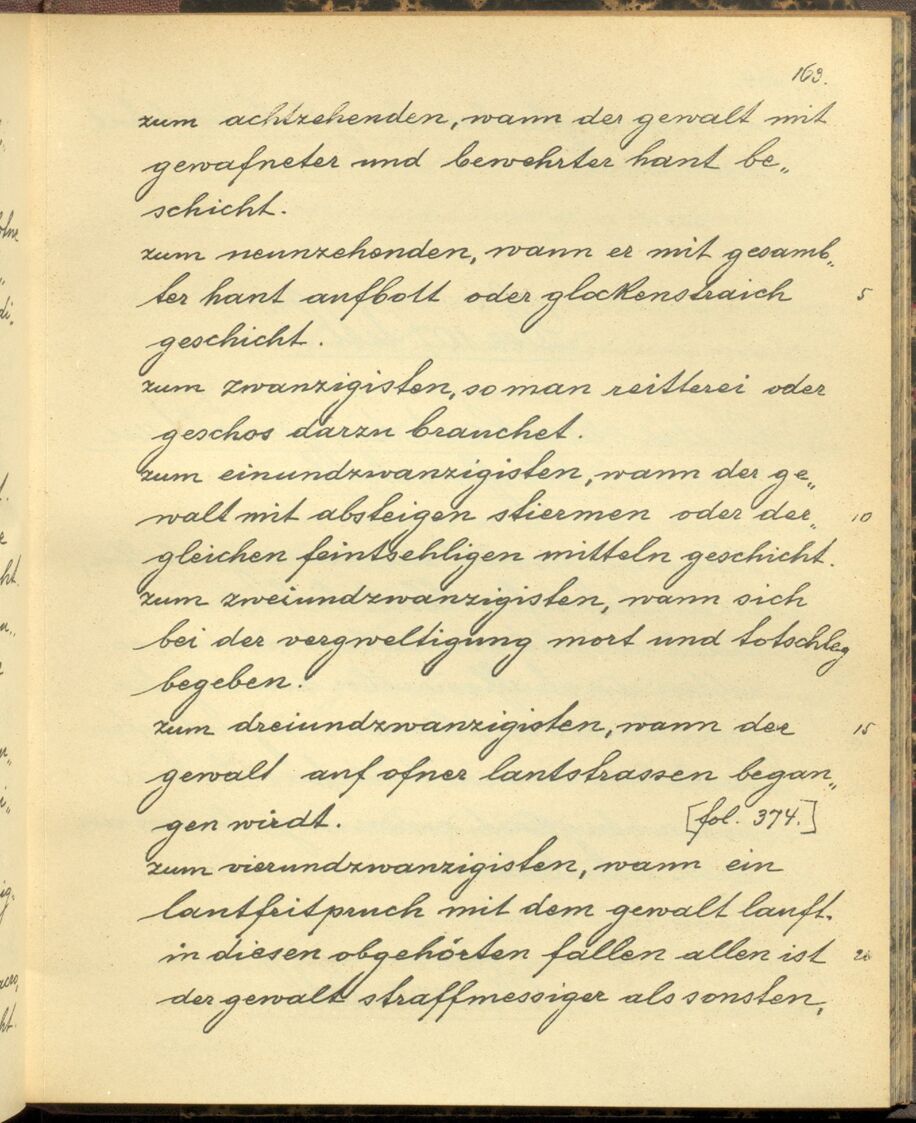 163.
zum achtzehenden, wann der gewalt mit
gewafneter und bewehrter hant be„
schicht.
zum neunzehenden, wann er mit gesamb„
ter hant aufbott oder glockenstraich 5
geschicht.
zum zwanzigisten, so man reitterei oder
geschos darzu brauchet.
zum einundzwanzigisten, wann der ge„
walt mit absteigen stiermen oder der„ 10
gleichen feintsehligen mitteln geschicht.
zum zweiundzwanzigisten, wann sich
bei der vergweltigung mort und totschleg
begeben.
zum dreiundzwanzigisten, wann der 15
gewalt auf ofner lantstrassen began„
gen wirdt. [fol. 374.]
zum vierundzwanzigisten, wann ein
lantfritpruch mit dem gewalt lauft.
in diesen obgehörten fallen allen ist 20
der gewalt straffmessiger als sonsten,